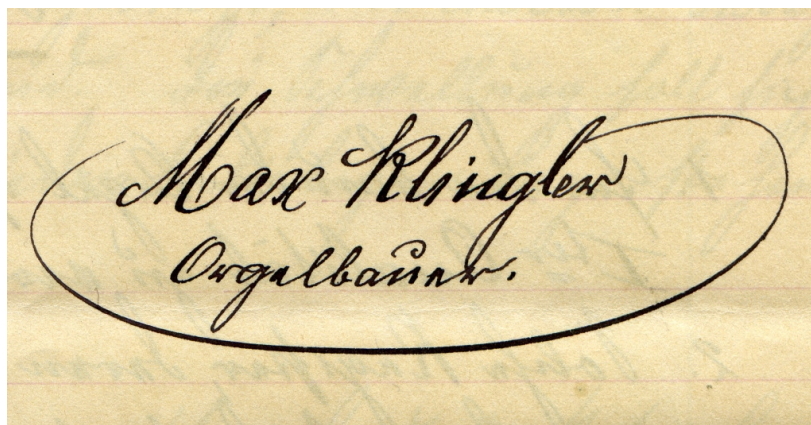 Max Klingler
Orgelbauer.